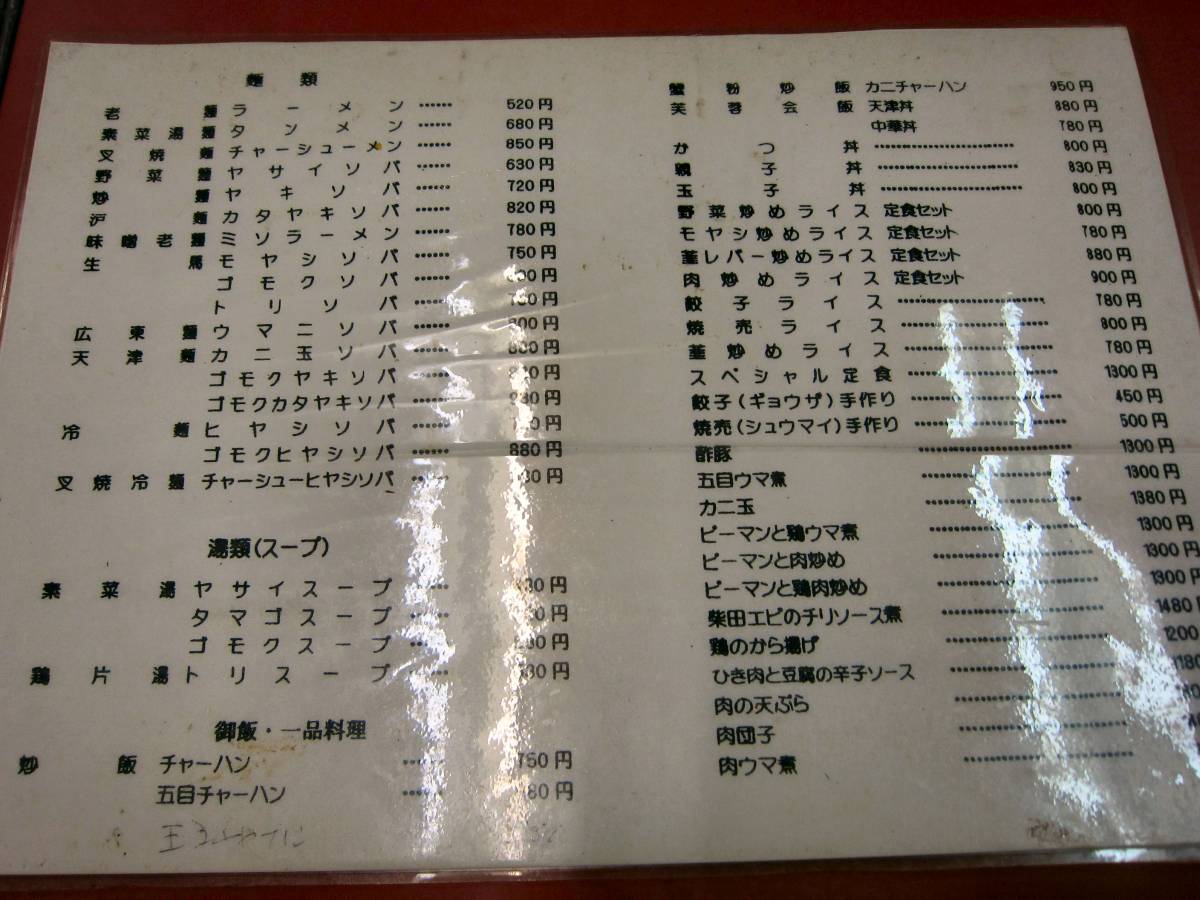 麺類
老麺 ラーメン …… 520円
素菜湯麺 タンメン …… 680円
叉焼麺 チャーシューメン …… 850円
野菜麺 ヤサイソバ …… 630円
炒麺 ヤキソバ …… 720円
沪麺 カタヤキソバ …… 820円
味噌老麺 ミソラーメン …… 780円
生馬 モヤシソバ …… 750円
ゴモクソバ …… 円
トリソバ …… 円
広東麺 ウマニソバ …… 円
天津麺 カニ玉ソバ …… 円
ゴモクヤキソバ …… 円
ゴモクカタヤキソバ …… 円
冷麺 ヒヤシソバ …… 円
ゴモクヒヤシソバ …… 880円
叉焼冷麺 チャーシューヒヤシソバ …… 円
湯類(スープ)
素菜湯 ヤサイスープ 円
タマゴスープ 円
ゴモクスープ 円
鶏片湯 トリスープ 円
御飯・一品料理
炒飯 チャーハン 750円
五目チャーハン 円
蟹粉炒飯 カニチャーハン 950円
芙蓉会飯 天津丼 880円
中華丼 780円
かつ丼 …… 800円
親子丼 …… 830円
玉子丼 …… 800円
野菜炒めライス 定食セット 800円
モヤシ炒めライス 定食セット 780円
韮レバー炒めライス 定食セット 880円
肉炒めライス 定食セット 900円
餃子ライス …… 780円
焼売ライス …… 800円
韮炒めライス …… 780円
スペシャル定食 …… 1300円
餃子(ギョウザ)手作り …… 450円
焼売(シュウマイ)手作り …… 500円
酢豚 …… 1300円
五目ウマ煮 …… 1300円
カニ玉 …… 1380円
ピーマンと鶏ウマ煮 …… 1300円
ピーマンと肉炒め …… 1300円
ピーマンと鶏肉炒め …… 1300円
柴田エビのチリソース煮 …… 1480円
鶏のから揚げ …… 1200
ひき肉と豆腐の辛子ソース …… 1180
肉の天ぷら ……
肉団子 ……
肉ウマ煮 ……